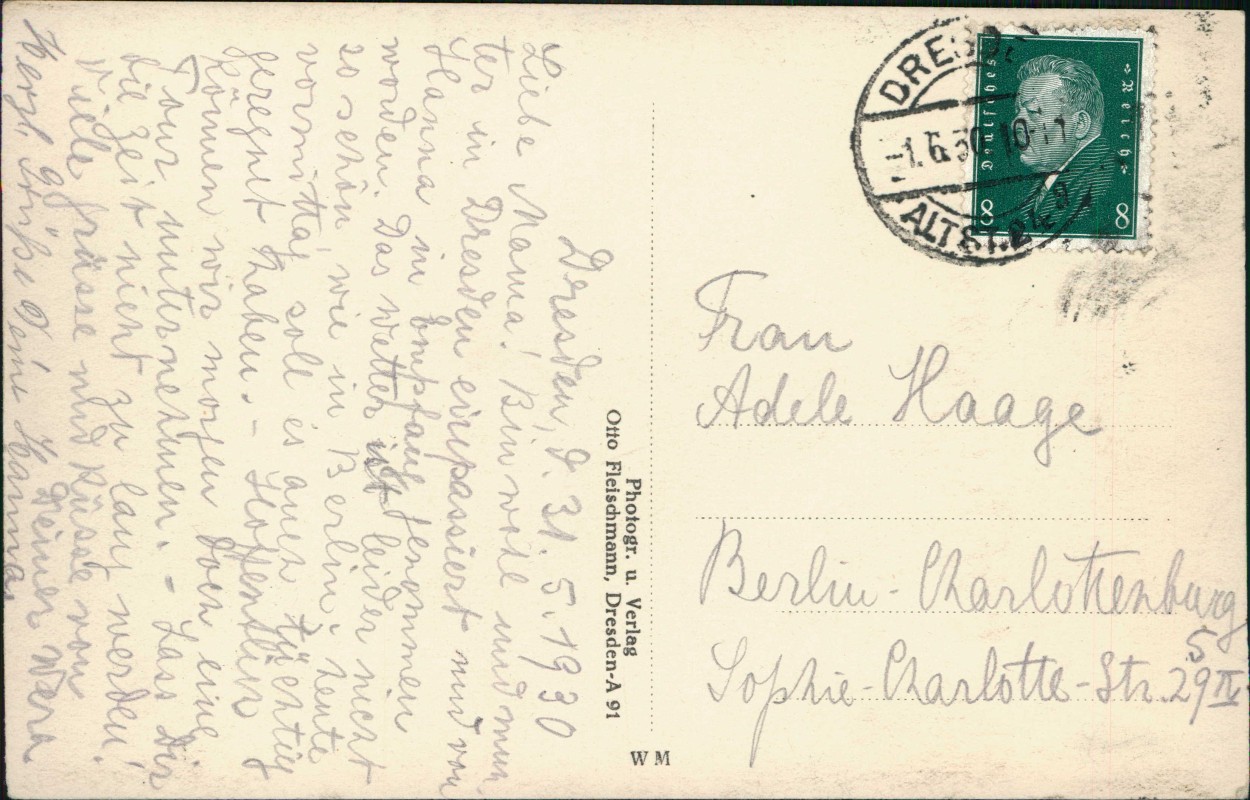 Dresden, d. 31. 5. 1930
Liebe Mama! Bin wohl und mun-
ter in Dresden einpassiert und von
Hanna in Empfang genommen
worden. Das Wetter ist leider nicht
so schön wie in Berlin, heute
vormittag soll es auch tüchtig
geregnet haben. - Hoffentlich
können wir morgen doch eine
Tour unternehmen. - Lass Dir
die Zeit nicht zu lang werden!
Viele Grüsse und Küsse von
Deiner Wera
Herzl. Grüße Deine Hanna
Photogr. u. Verlag
Otto Fleischmann, Dresden-A 91
W M
DRESDEN
-1.6.30 10-11
ALTST. 24
Deutsches
Reich
8
8
Frau
Adele Haage
Berlin-Charlottenburg
5
Sophie-Charlotte-Str. 29 IV